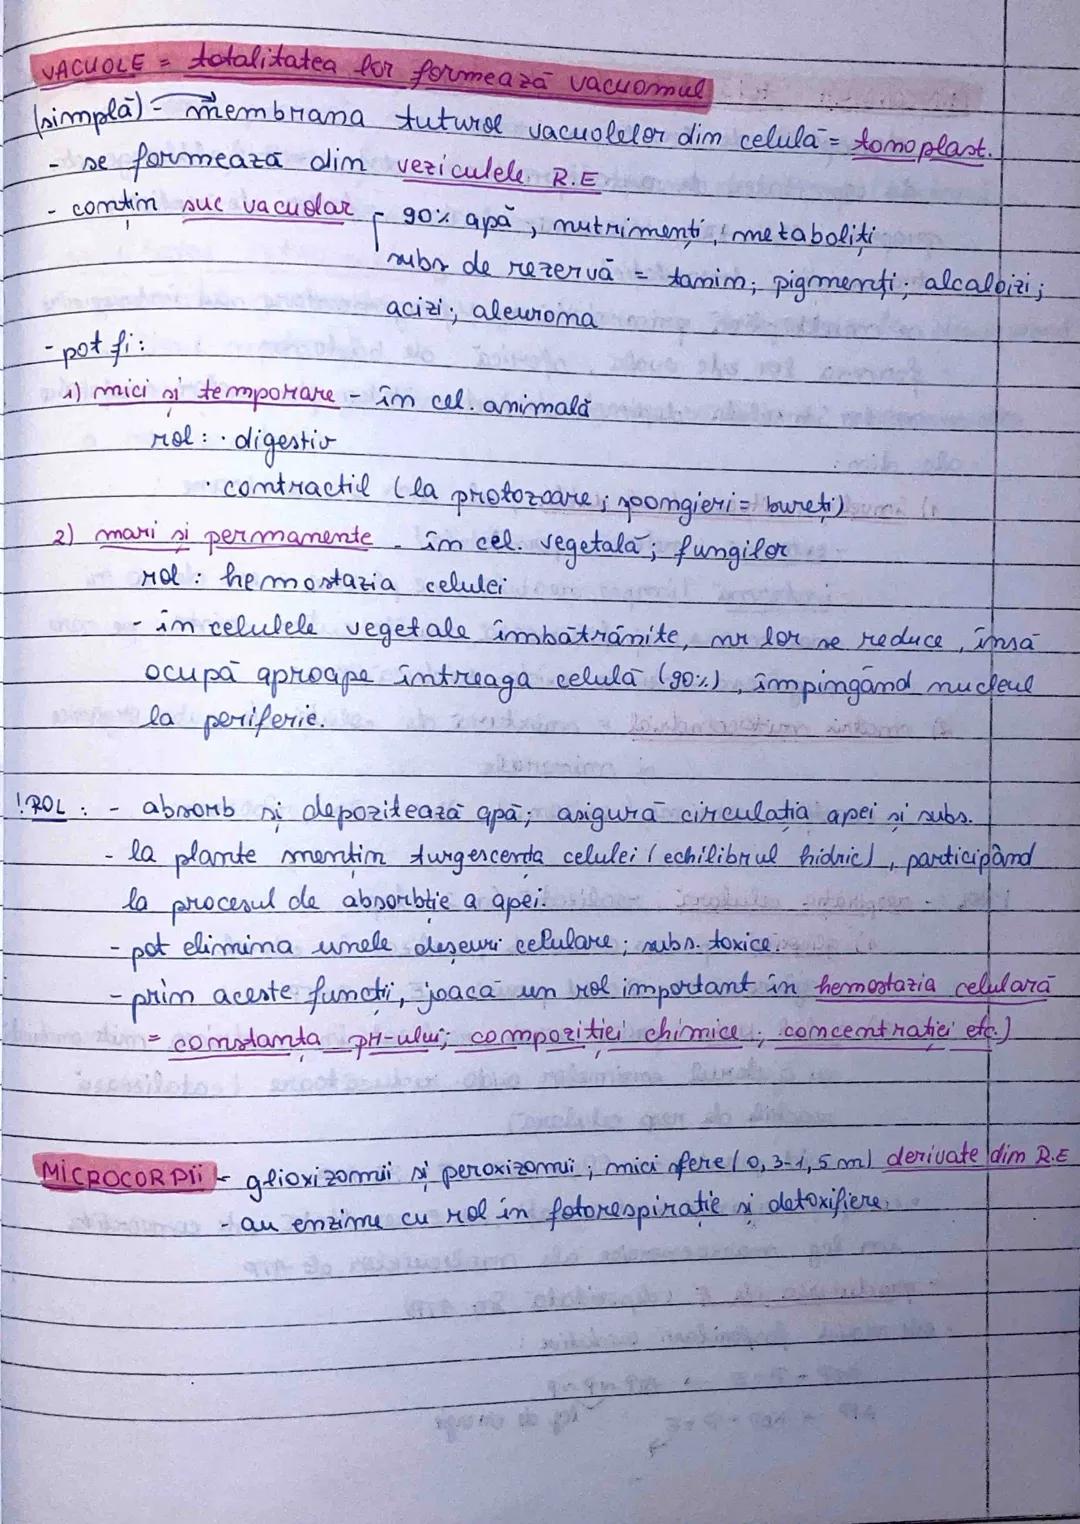 VACUOLE = totalitatea lor formează vacuomul
(simplă) - membrana tuturor vacuolelor din celulă = tonoplast.
- se formează din veziculele R.E
- conțin suc vacuolar - 90% apă; nutrimenți, metaboliți
subs de rezervă = tanin; pigmenți; alcaloizi;
acizi; aleurona
- pot fi:
1) mici și temporare - în cel. animală
rol: · digestiv
· contractil (la protozoare; spongieri = bureți)
2) mari și permanente - în cel. vegetală; fungilor
rol: hemostazia celulei
- în celulele vegetale îmbătrânite, nr lor se reduce, însă
ocupă aproape întreaga celulă (90%), împingând nucleul
la periferie.
! ROL: - absorb și depozitează apă; asigură circulația apei și subs.
- la plante mențin turgescența celulei (echilibrul hidric), participând
la procesul de absorbție a apei.
- pot elimina unele deșeuri celulare; subs. toxice.
- prin aceste funcții, joacă un rol important în hemostazia celulară
= constanta pH-ului; compoziției chimice; concentrației etc.)
MICROCORPII - glioxizomii și peroxizomii; mici sfere (0,3-1,5 m) derivate din R.E
- au enzime cu rol în fotorespirație și detoxifiere.